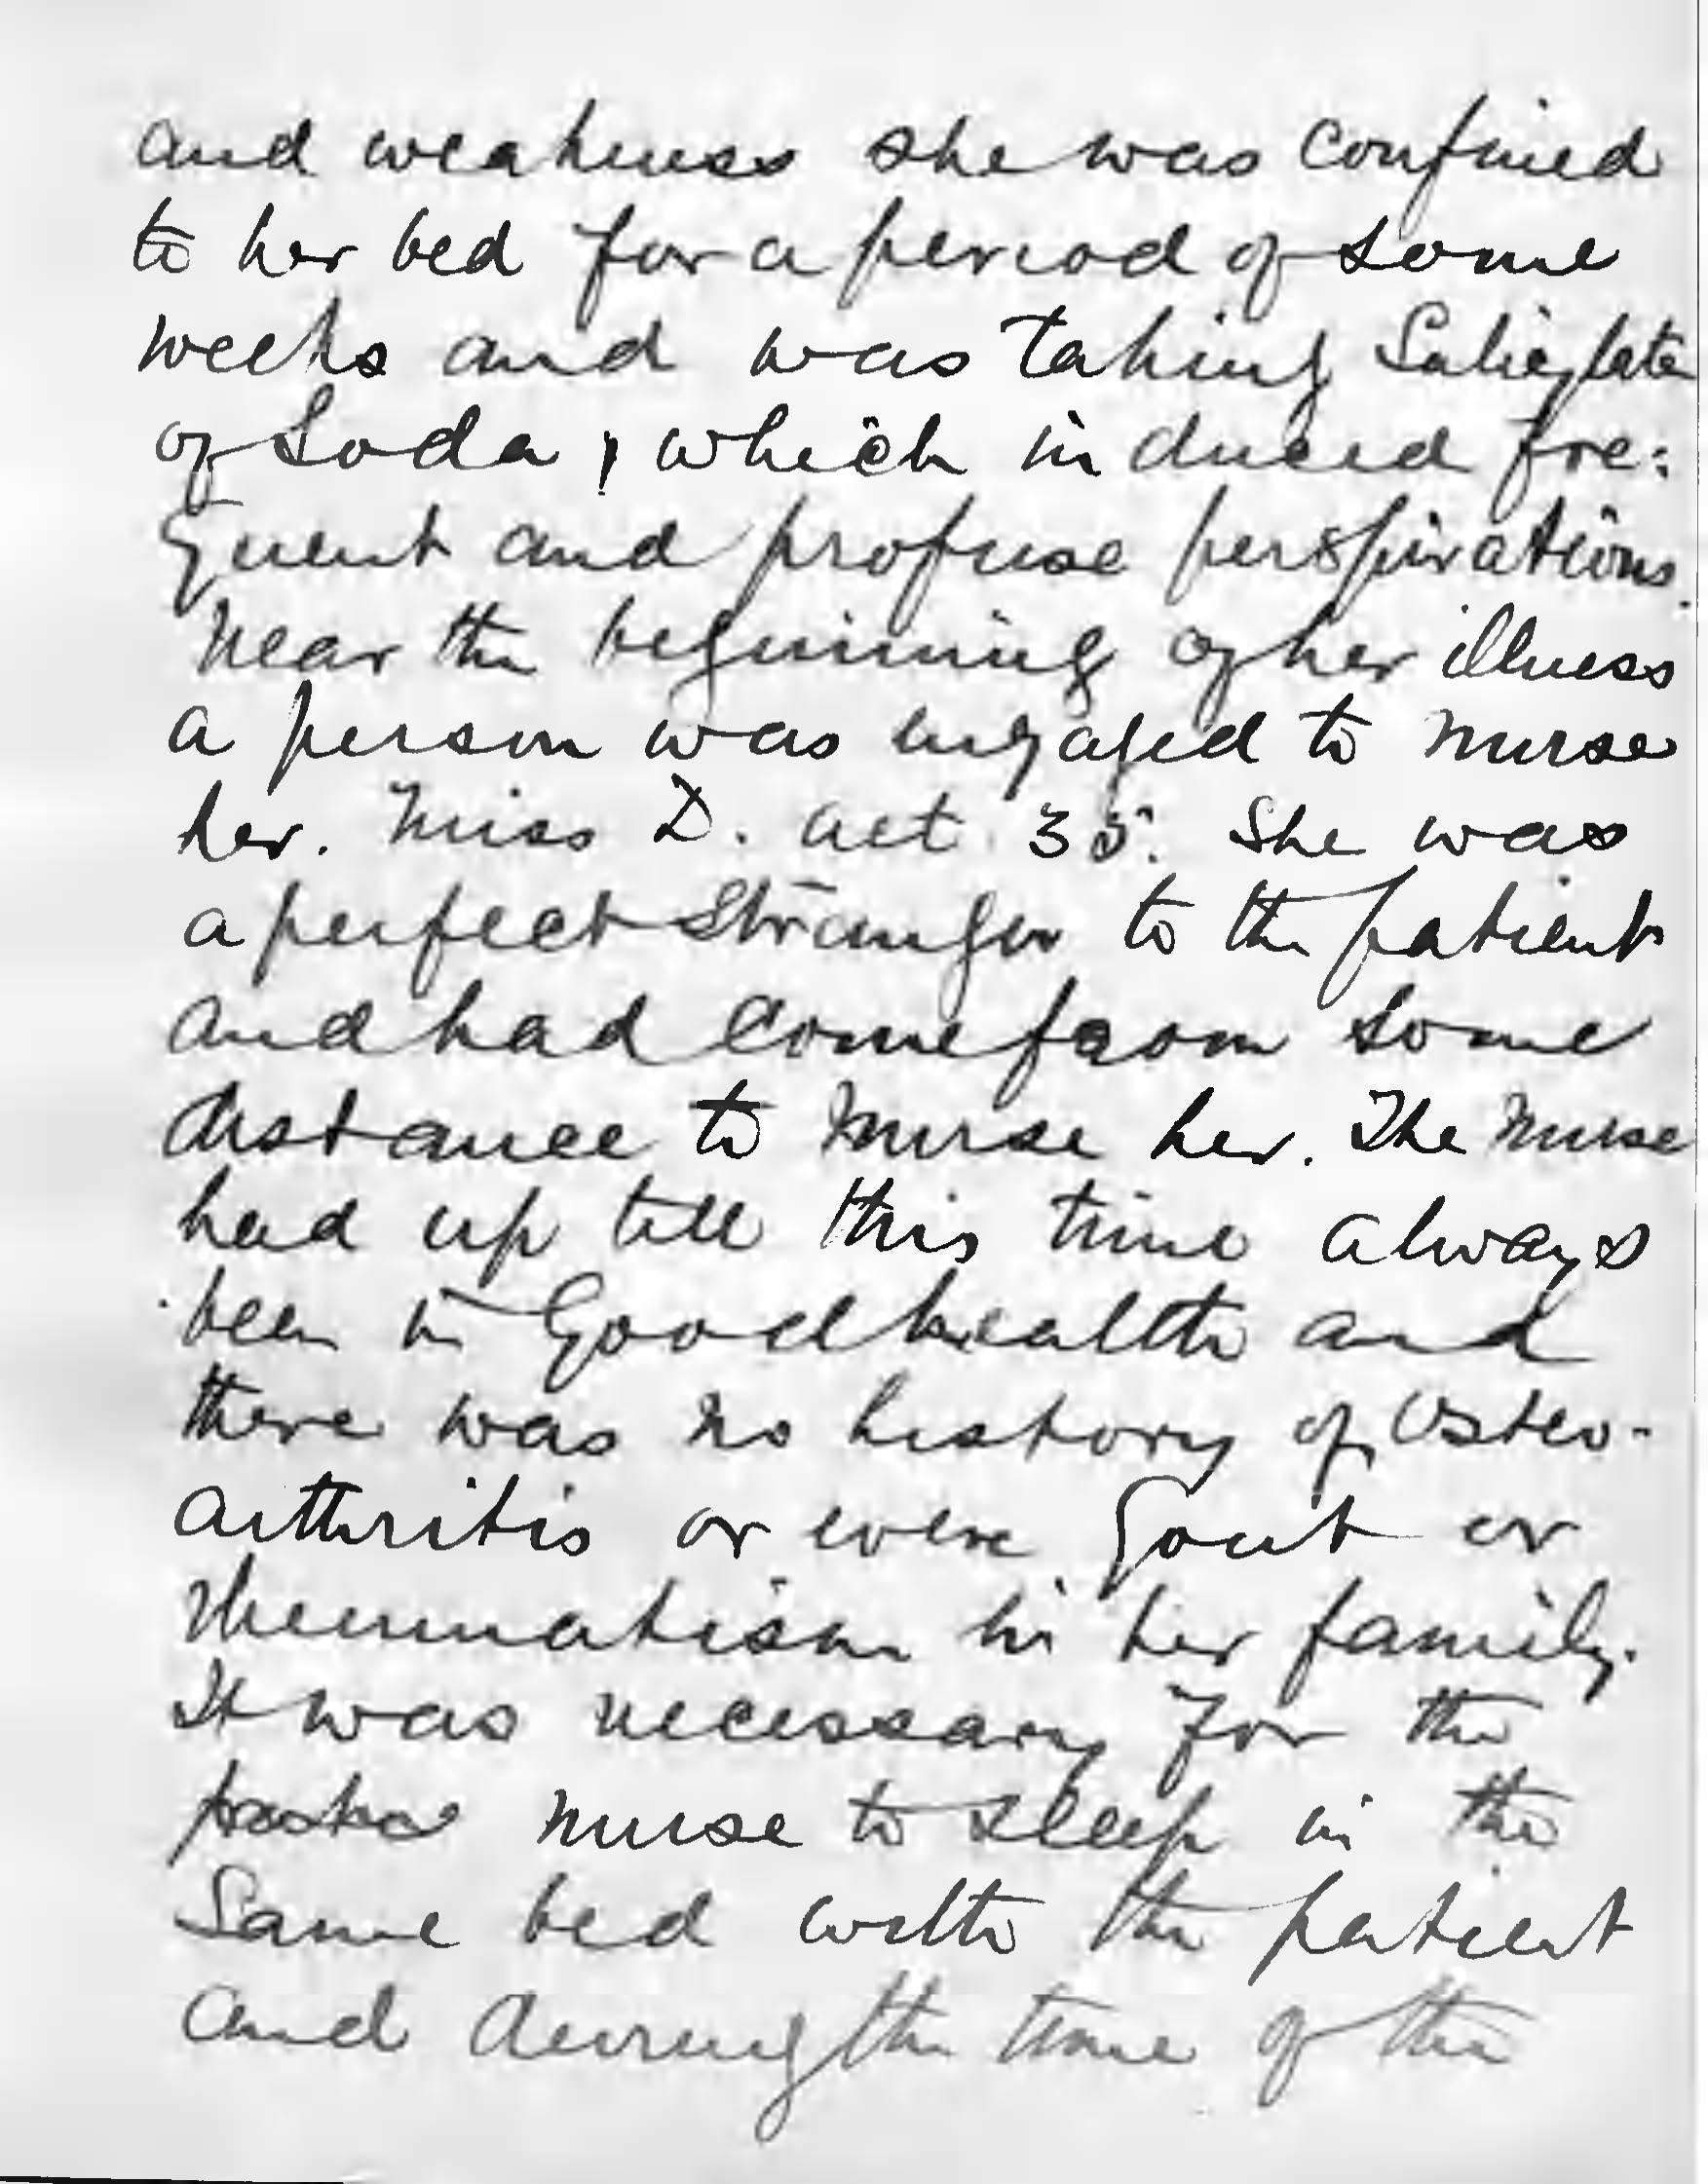 and weakness she was confined
to her bed for a period of some
weeks and was taking Salicylate
of Soda, which induced fre:
quent and profuse perspirations.
Near the beginning of her illness
a person was engaged to nurse
her. Miss D. aet. 35. She was
a perfect stranger to the patient
and had come from some
distance to nurse her. The nurse
had up till this time always
been in good health and
there was no history of Osteo-
arthritis or even Gout or
rheumatism in her family.
It was necessary for the
nurse to sleep in the
same bed with the patient
and during the time of the